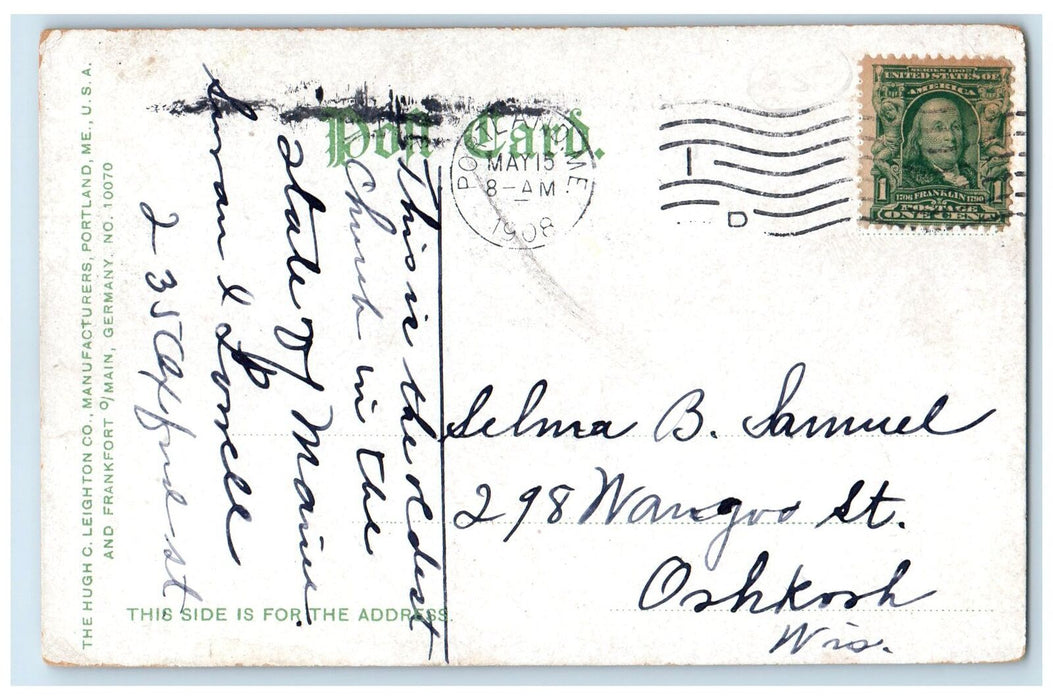 THE HUGH C. LEIGHTON CO., MANUFACTURERS, PORTLAND, ME., U.S.A.
AND FRANKFORT O/MAIN, GERMANY. NO. 10070
Post Card.
THIS SIDE IS FOR THE ADDRESS.
This is the oldest
Church in the
State of Maine.
235 st
PORTLAND, ME
MAY 15
8-AM
1908
1
D
SERIES 1902
UNITED STATES OF
AMERICA
1706 FRANKLIN 1790
1 1
POSTAGE
ONE CENT
Selma B. Samuel
298 Waugoo St.
Oshkosh
Wis.